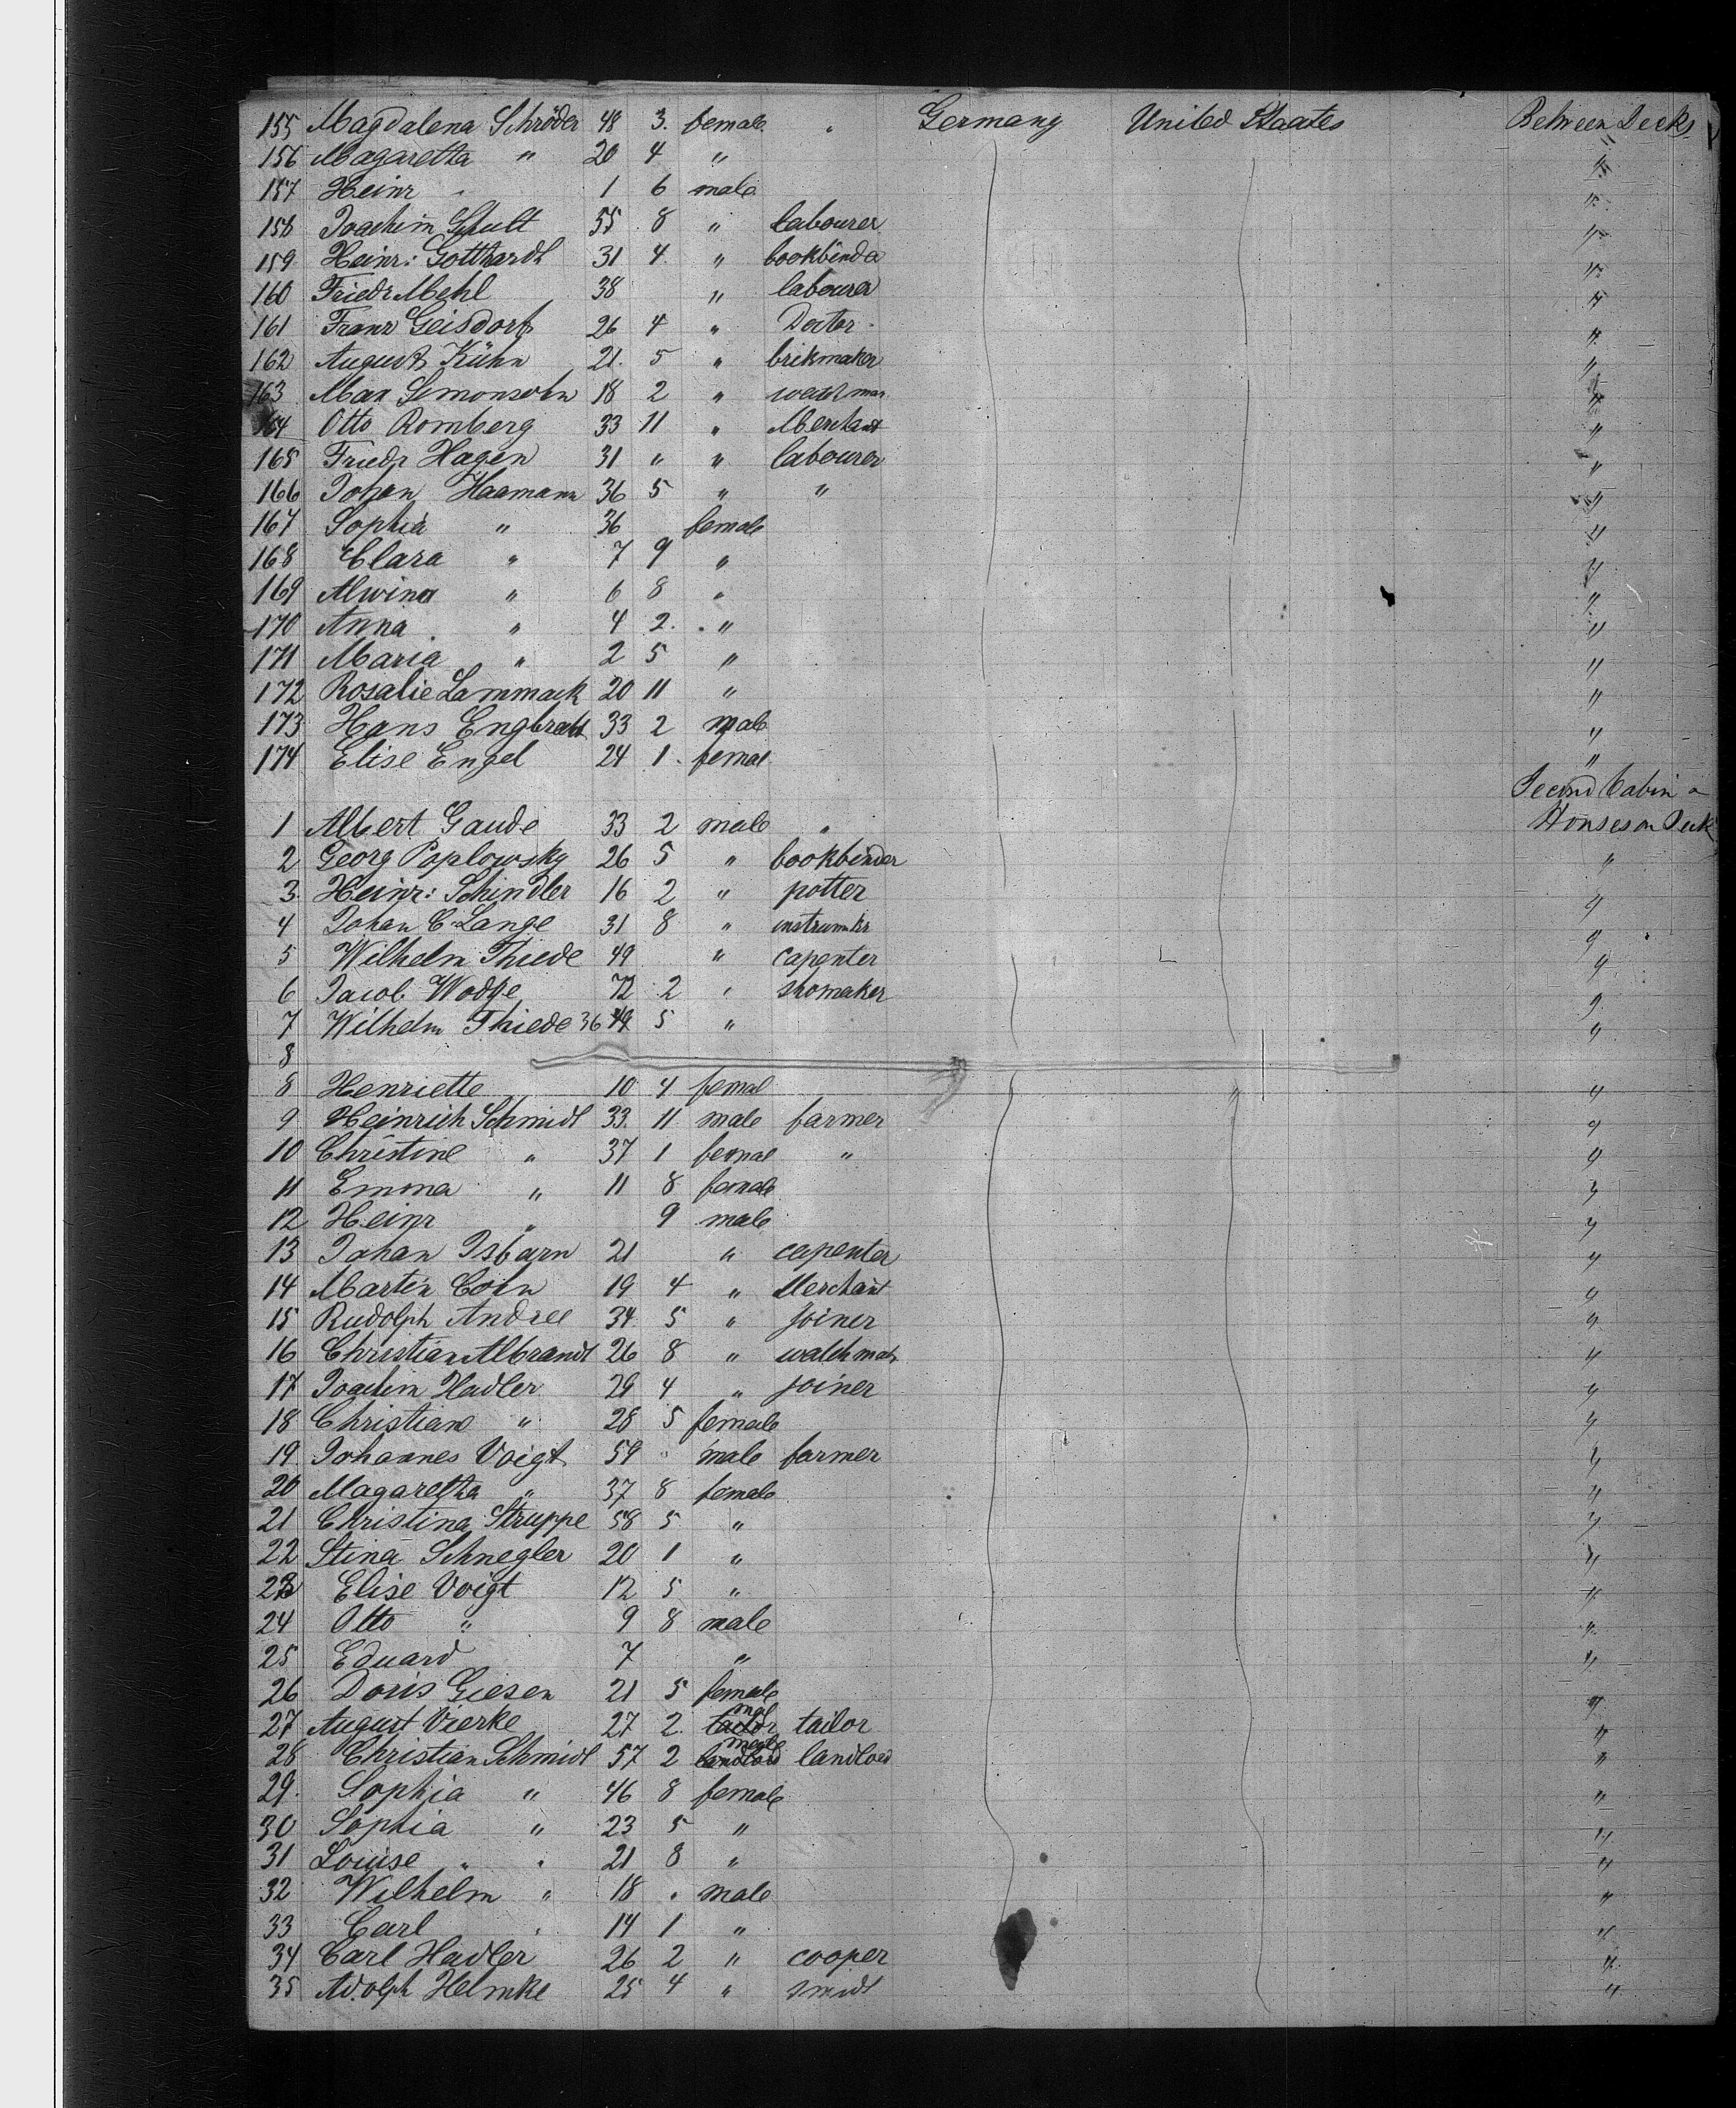 155 Magdalena Schröder 48 3. female " Germany United Staates Between Decks
156 Magaretta " 20 4 " "
157 Heinr " 1 6 male "
158 Joachim Schult 55 8 " labourer "
159 Heinr: Gotthardt 31 4 " bookbinder "
160 Friedr Mehl 38 " labourer "
161 Franz Geisdorf 26 4 " Doctor "
162 August Kühn 21. 5 " brikmaker "
163 Max Simonsohn 18 2 " "
164 Otto Romberg 33 11 " Merchant "
165 Friedr Hagen 31 " " labourer "
166 Johan Haamann 36 5 " " "
167 Sophia " 36 female "
168 Clara " 7 9 " "
169 Alwina " 6 8 " "
170 Anna " 4 2. " "
171 Maria " 2 5 " "
172 Rosalie Lammack 20 11 " "
173 Hans Engbrecht 33 2 male "
174 Elise Engel 24 1. femal "
Second Cabin
1 Albert Gaude 33 2 male " Houses on Deck
2 Georg Poplowsky 26 5 " bookbinder "
3. Heinr: Schindler 16 2 " potter "
4 Johan C. Lange 31 8 " instrumkr "
5 Wilhelm Thiede 49 " capenter "
6 Jacob 72 2 " shomaker "
7 Wilhelm Thiede 36 49 5 " "
8
8 Henriette 10 4 femal "
9 Heinrich Schmidt 33. 11 male farmer "
10 Christine " 37 1 femal " "
11 Emma " 11 8 female "
12 Heinr " 9 male "
13 Johan Isbarn 21 " capenter "
14 Martin Cohn 19 4 " Merchant "
15 Rudolph Andree 34 5 " joiner "
16 Christian Albrandt 26 8 " watchmak "
17 Joachim Hadler 29 4 " joiner "
18 Christian " 28 5 female "
19. Johannes Voigt 59 " male farmer "
20 Magaretha " 37 8 female "
21 Christina Struppe 58 5 " "
22 Stina Schnegler 20 1 " "
23 Elise Voigt 12 5 " "
24 Otto " 9 8 male "
25 Eduard 7 " "
26 Doris Giesen 21 5 female "
27 August Vierke 27 2. tailor mal tailor "
28 Christian Schmidt 57 2 landloed male landloed "
29. Sophia " 46 8 female "
30 Sophia " 23 5 " "
31 Louise " " 21 8 " "
32 Wilhelm " 18 " male "
33 Carl " 14 1 " "
34 Carl Hadler 26 2 " cooper "
35 Adolph Helmke 25 4 " smidt "